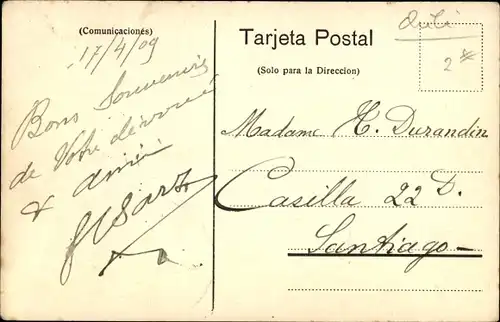 (Comunicaciones)
17/4/09
Bons Souvenirs
de Votre dévoué
& ami
Tarjeta Postal
(Solo para la Direccion)
Chili
2
Madame H. Durandin
Casilla 22 D.
Santiago